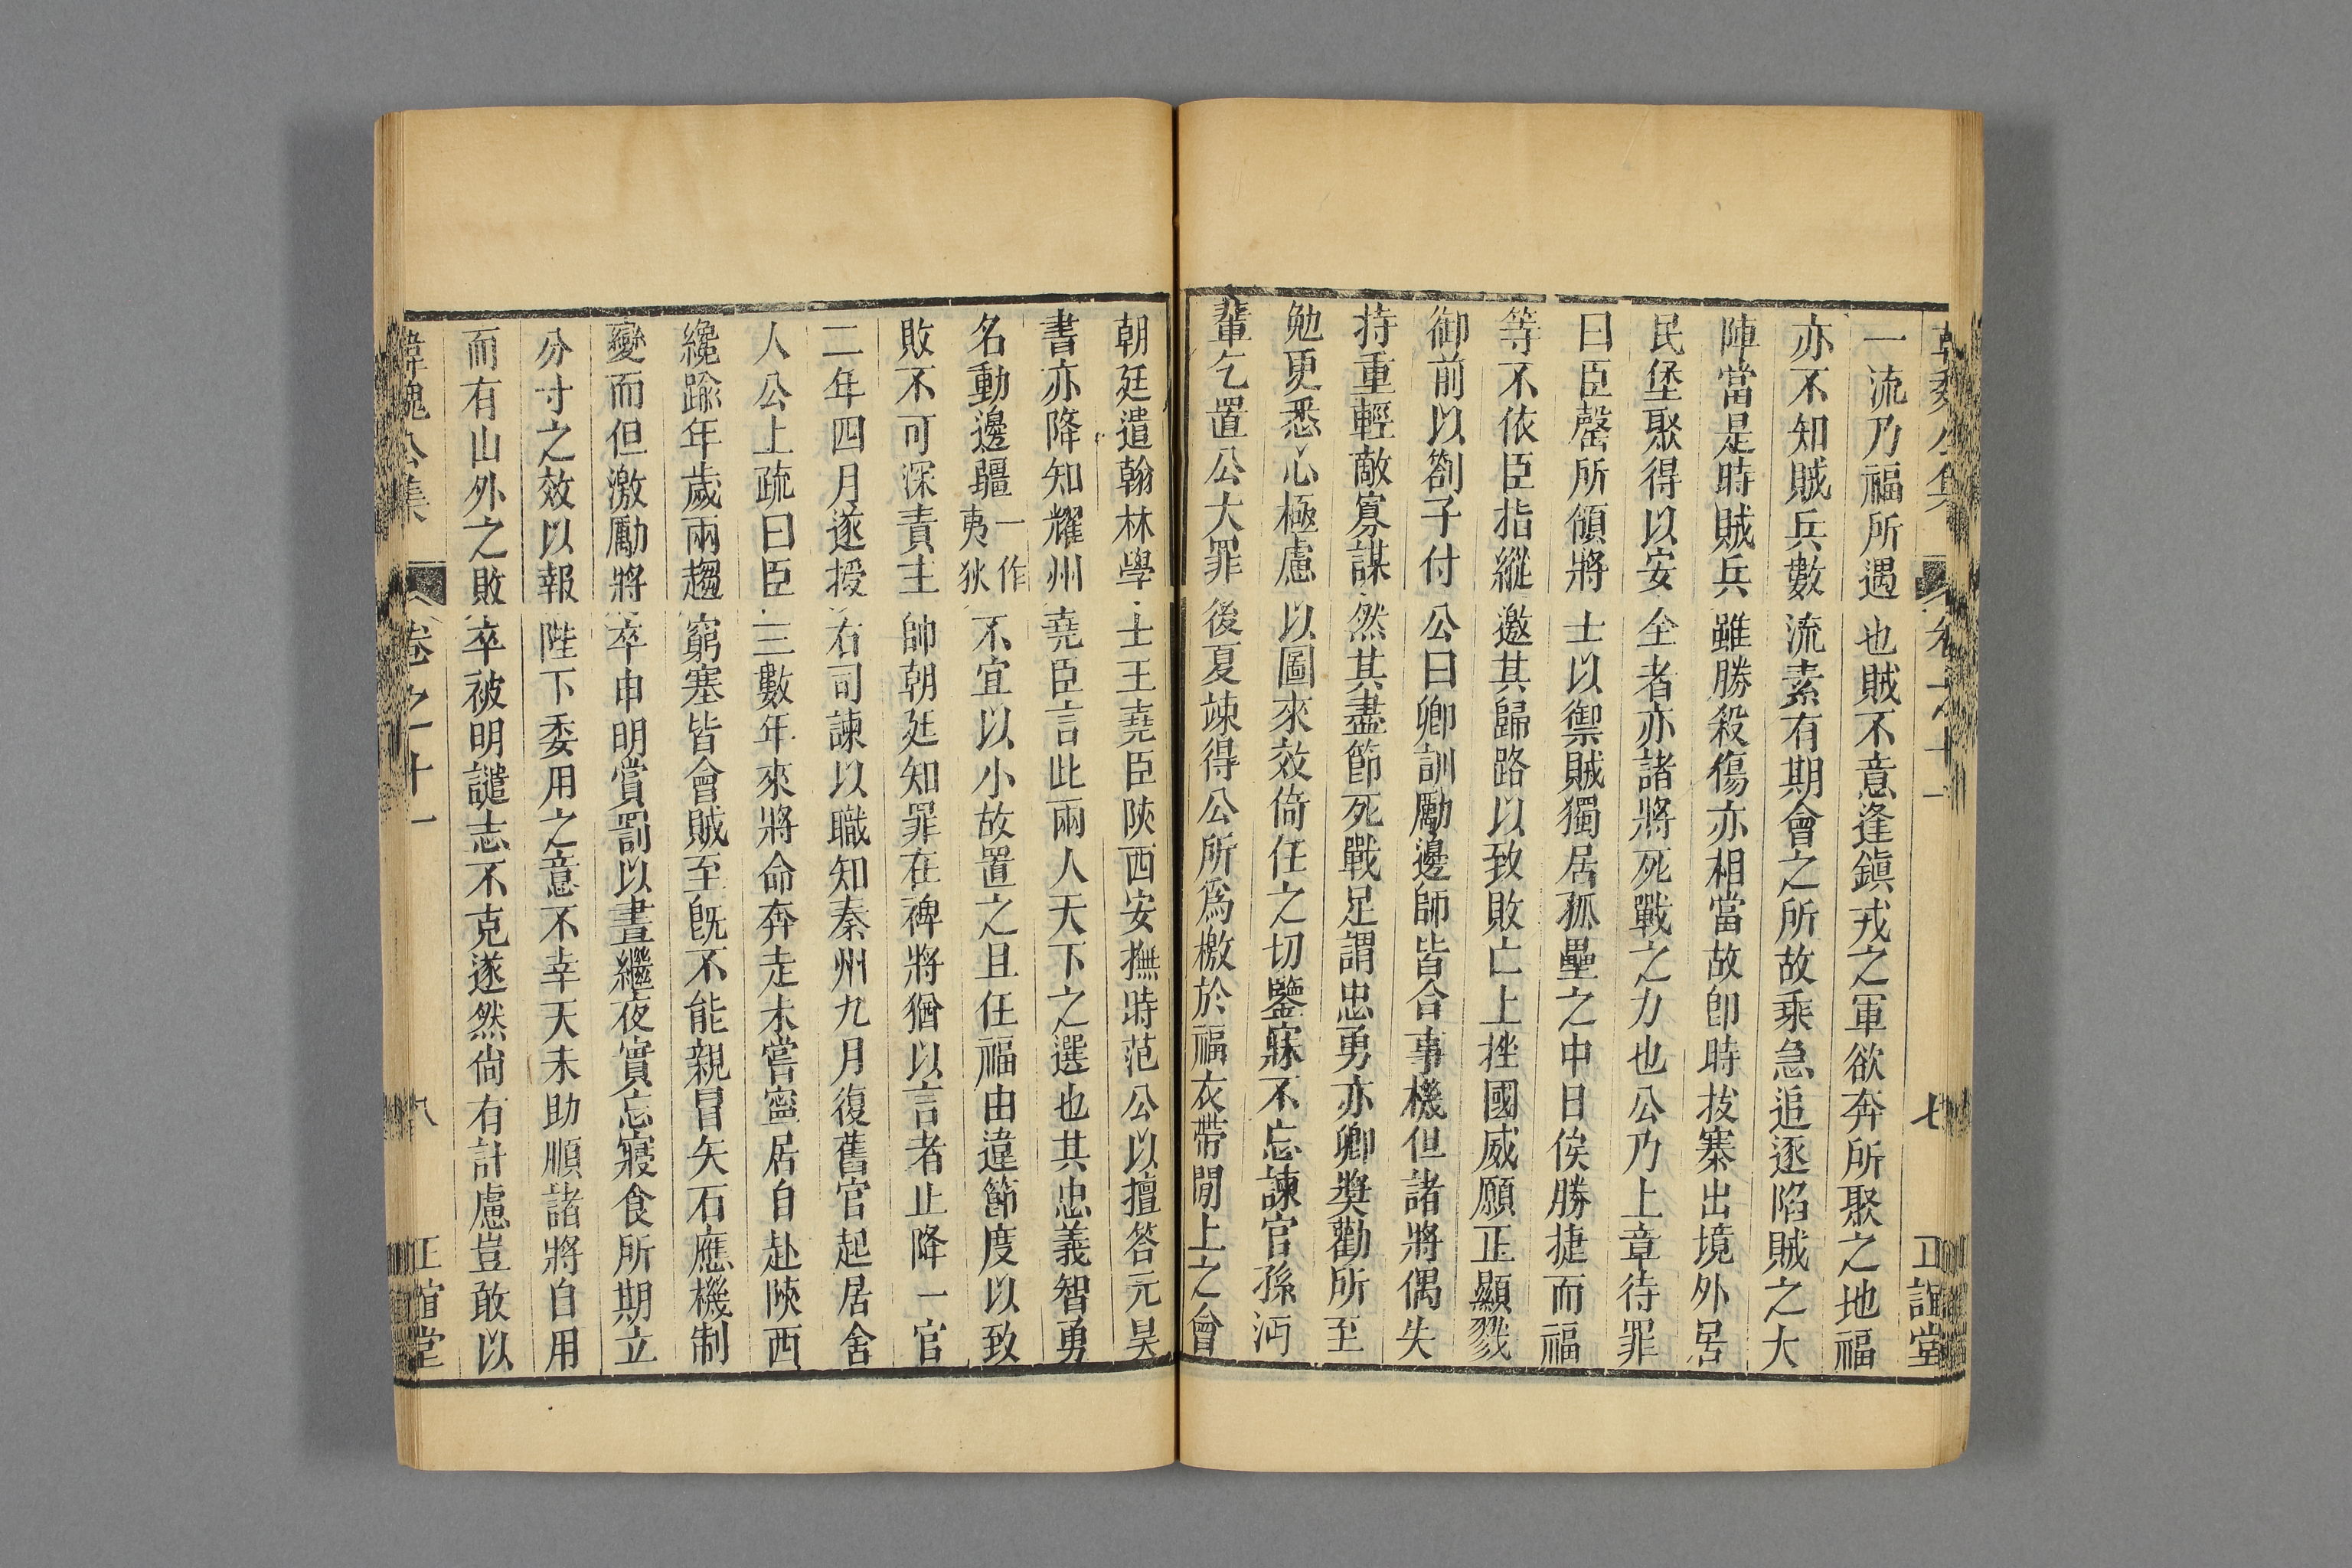 韓魏公集 卷之十一 七 正誼堂
一流乃福所遇也賊不意逢鎮戎之軍欲奔所聚之地福
亦不知賊兵數流素有期會之所故乘急追逐陷賊之大
陣當是時賊兵雖勝殺傷亦相當故卽時拔寨出境外居
民堡聚得以安全者亦諸將死戰之力也公乃上章待罪
曰臣罄所領將士以禦賊獨居孤壘之中日俟勝捷而福
等不依臣指縱邀其歸路以致敗亡上挫國威願正顯戮
御前以劄子付公曰卿訓勵邊師皆合事機但諸將偶失
持重輕敵寡謀然其盡節死戰足謂忠勇亦卿奬勸所至
勉更悉心極慮以圖來效倚任之切鑒寐不忘諫官孫沔
輩乞置公大罪後夏竦得公所爲檄於福衣帶閒上之會
朝廷遣翰林學士王堯臣陜西安撫時范公以擅答元昊
書亦降知耀州堯臣言此兩人天下之選也其忠義智勇
名動邊疆一作夷狄不宜以小故置之且任福由違節度以致
敗不可深責主帥朝廷知罪在裨將猶以言者止降一官
二年四月遂授右司諫以職知秦州九月復舊官起居舍
人公上疏曰臣三數年來將命奔走未嘗寧居自赴陜西
纔踰年歲兩趨窮塞皆會賊至旣不能親冒矢石應機制
變而但激勵將卒申明賞罰以晝繼夜實忘寢食所期立
分寸之效以報陛下委用之意不幸天未助順諸將自用
而有山外之敗卒被明譴志不克遂然尙有計慮豈敢以
韓魏公集 卷之十一 八 正誼堂